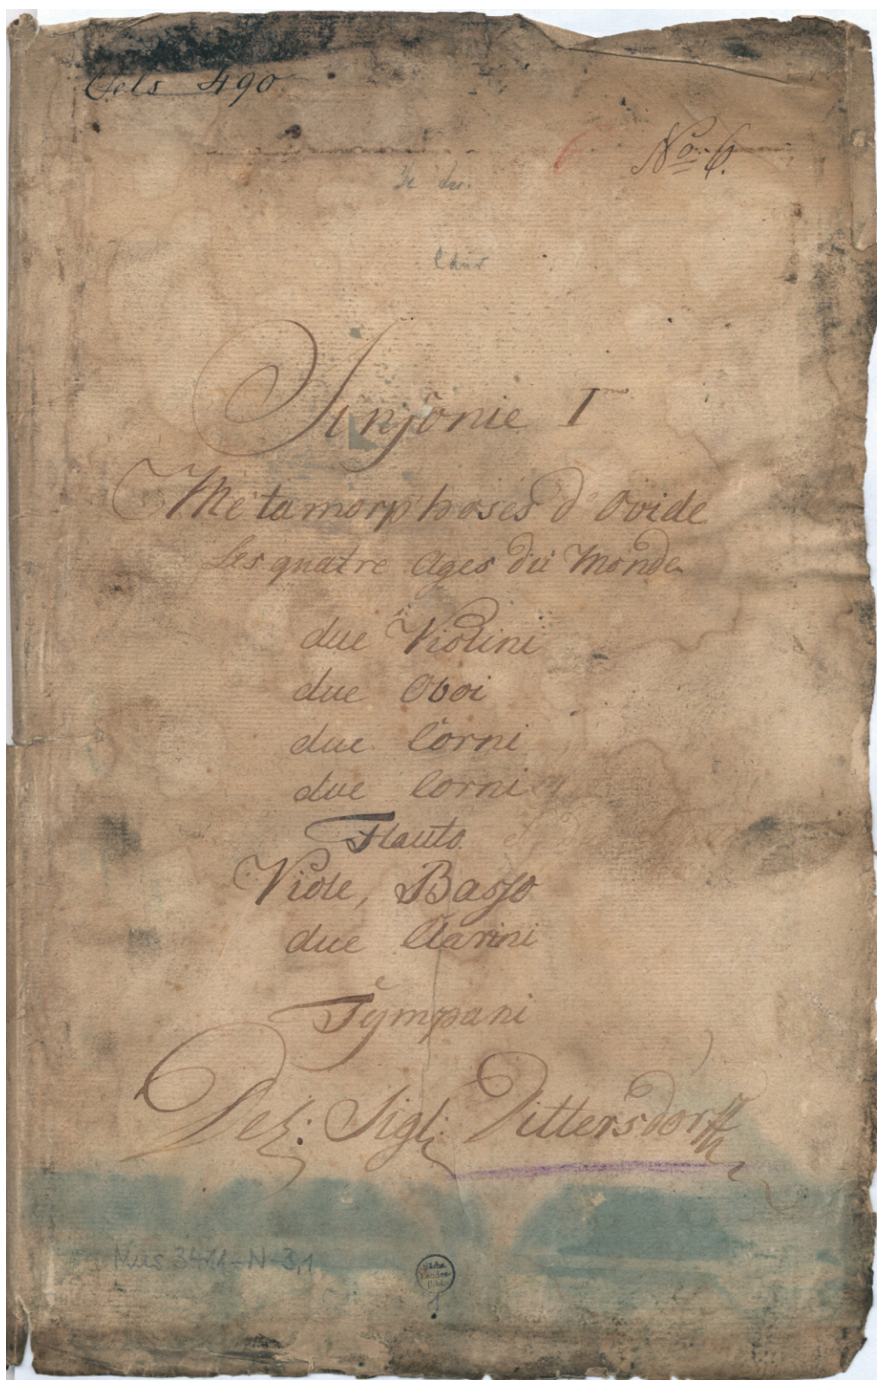 Oels 490
No. 6.
6
Chur
Sinfonie I^mo
Metamorphosés d'Ovide
Les quatre Ages du Monde
due Violini
due Oboi
due Corni
due Corni
Flauto
Viole, Basso
due Clarini
Tympani
Del: Sigl: Dittersdorff
Mus 3411-N-3,1
Sächs.
Landes-
Bibl.